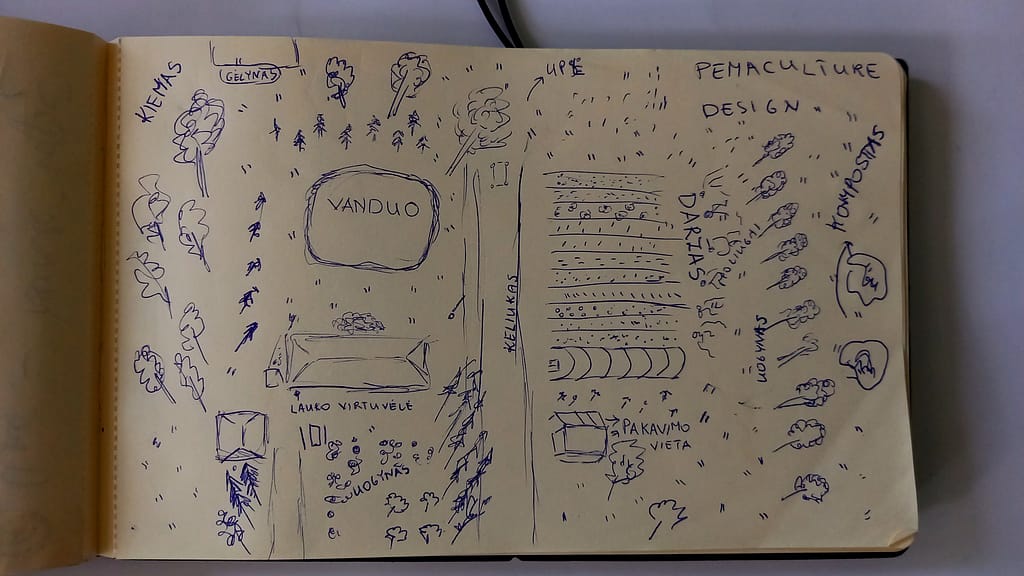 KIEMAS
GĖLYNAS
UPĖ
PEMACULTURE
DESIGN
VANDUO
KELIUKAS
DARŽAS
KOMPOSTAS
UOGYNAS
LAUKO VIRTUVĖLĖ
UOGYNAS
PAKAVIMO
VIETA